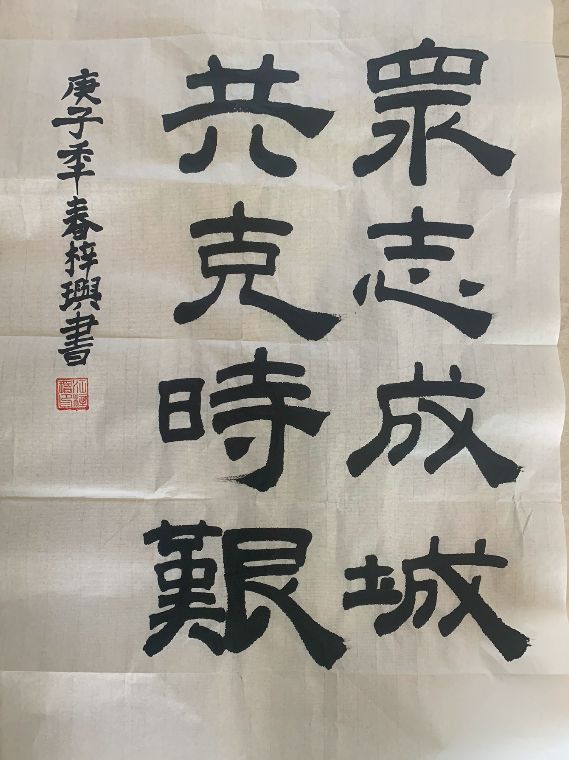 眾志成城
共克時艱
庚子秊春梓璵書